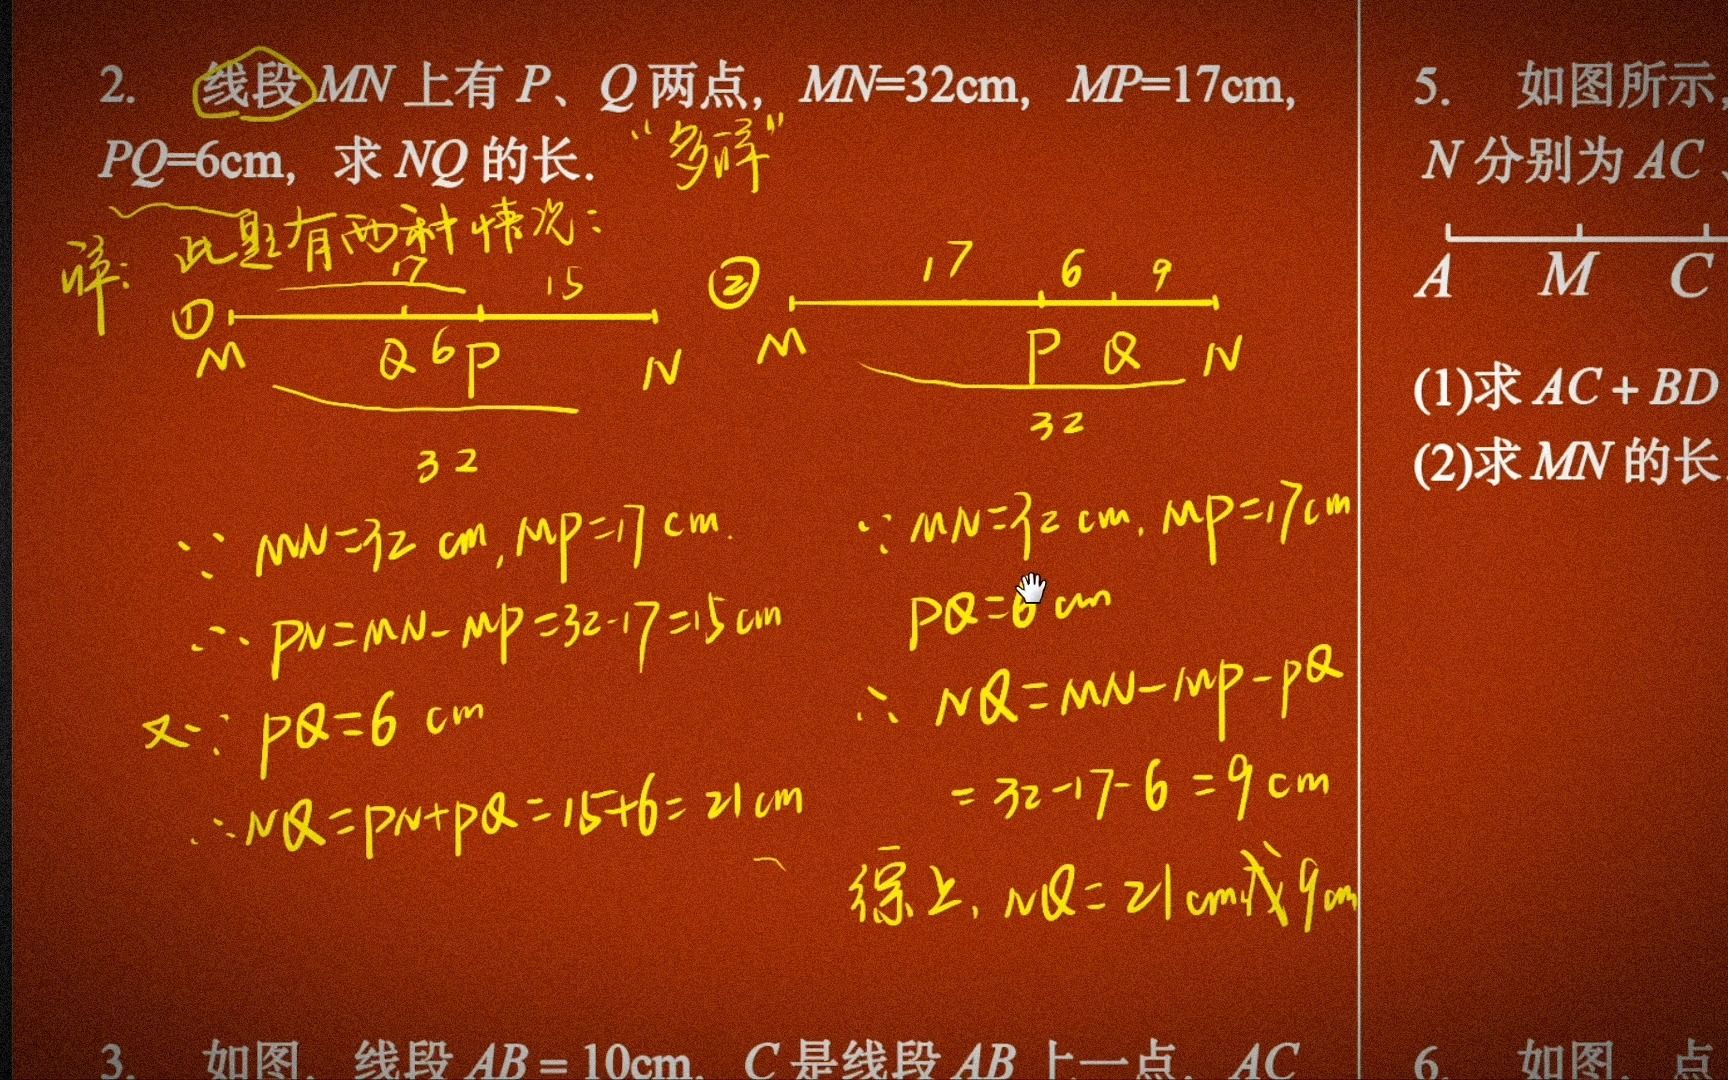 2. 线段MN上有P、Q两点，MN=32cm，MP=17cm，
PQ=6cm，求NQ的长．
“多解”
解：此题有两种情况：
① 17 15
M Q 6 P N
32
② 17 6 9
M P Q N
32
∵ MN=32 cm, MP=17 cm.
∴ PN=MN-MP=32-17=15cm
又∵ PQ=6 cm
∴ NQ=PN+PQ=15+6=21cm
∵ MN=32 cm, MP=17cm
PQ=6 cm
∴ NQ=MN-MP-PQ
=32-17-6=9cm
综上, NQ=21cm或9cm
3. 如图，线段AB=10cm，C是线段AB上一点，AC
5. 如图所示，
N分别为AC、
A M C
(1)求AC+BD
(2)求MN的长
6. 如图，点